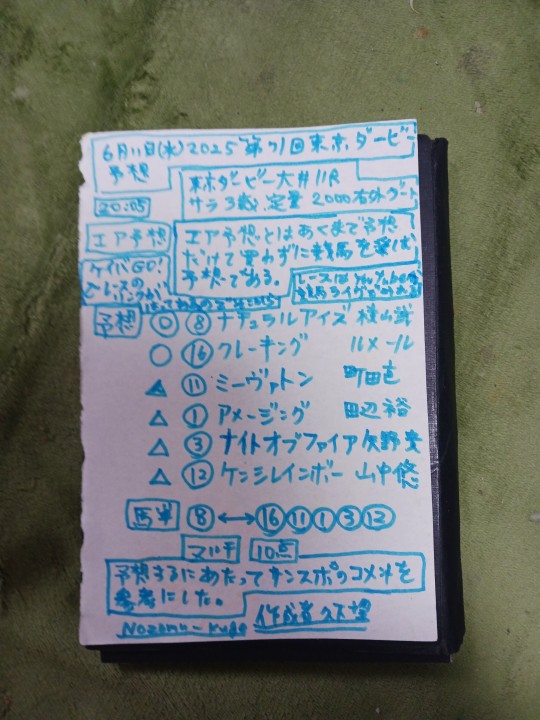 6月11日(水)2025 第71回東京ダービー
予想
東京ダービー大井11R
サラ3歳、定量 2000右外ダート
20:05
エア予想
エア予想とはあくまで予想
だけで買わずに競馬を楽しむ
予想である。
ケイバGO!
レースの
レースはYouTubeの
予想 ◎ ⑧ ナチュラルライズ 横山武
○ ⑯ クレーキング ルメール
▲ ⑪ ミーヴァトン 町田直
△ ① アメージング 田辺裕
△ ③ ナイトオブファイア 矢野貴
△ ⑫ ケンシレインボー 山中悠
馬単 ⑧ ↔ ⑯⑪①③⑫
マルチ 10点
予想するにあたってサンスポのコメントを
参考にした。
Nozomu-Kuge 作成者 久下望